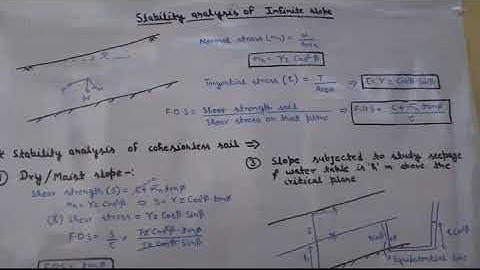 Stability analysis of Infinite slope
Normal stress (σn) = N / Area
σn = γz Cos²β
Tangential stress (τ) = T / Area ⇒ τ = γz Cosβ·Sinβ
F.O.S = Shear strength soil / Shear stress on that plane ⇒ F.O.S = C + σn tanφ / τ
* Stability analysis of cohesionless soil ⇒
① Dry/Moist slope-:
Shear strength (S) = C + σn tanφ
σn = γz Cos²β ⇒ S = γz Cos²β tanφ
shear stress = γz Cosβ Sinβ
F.O.S = S/τ = γz Cos²β · tanφ / γz Cosβ Sinβ
③ Slope subjected to study seepage
& water table is 'h' m above the
critical plane
Equipotential line